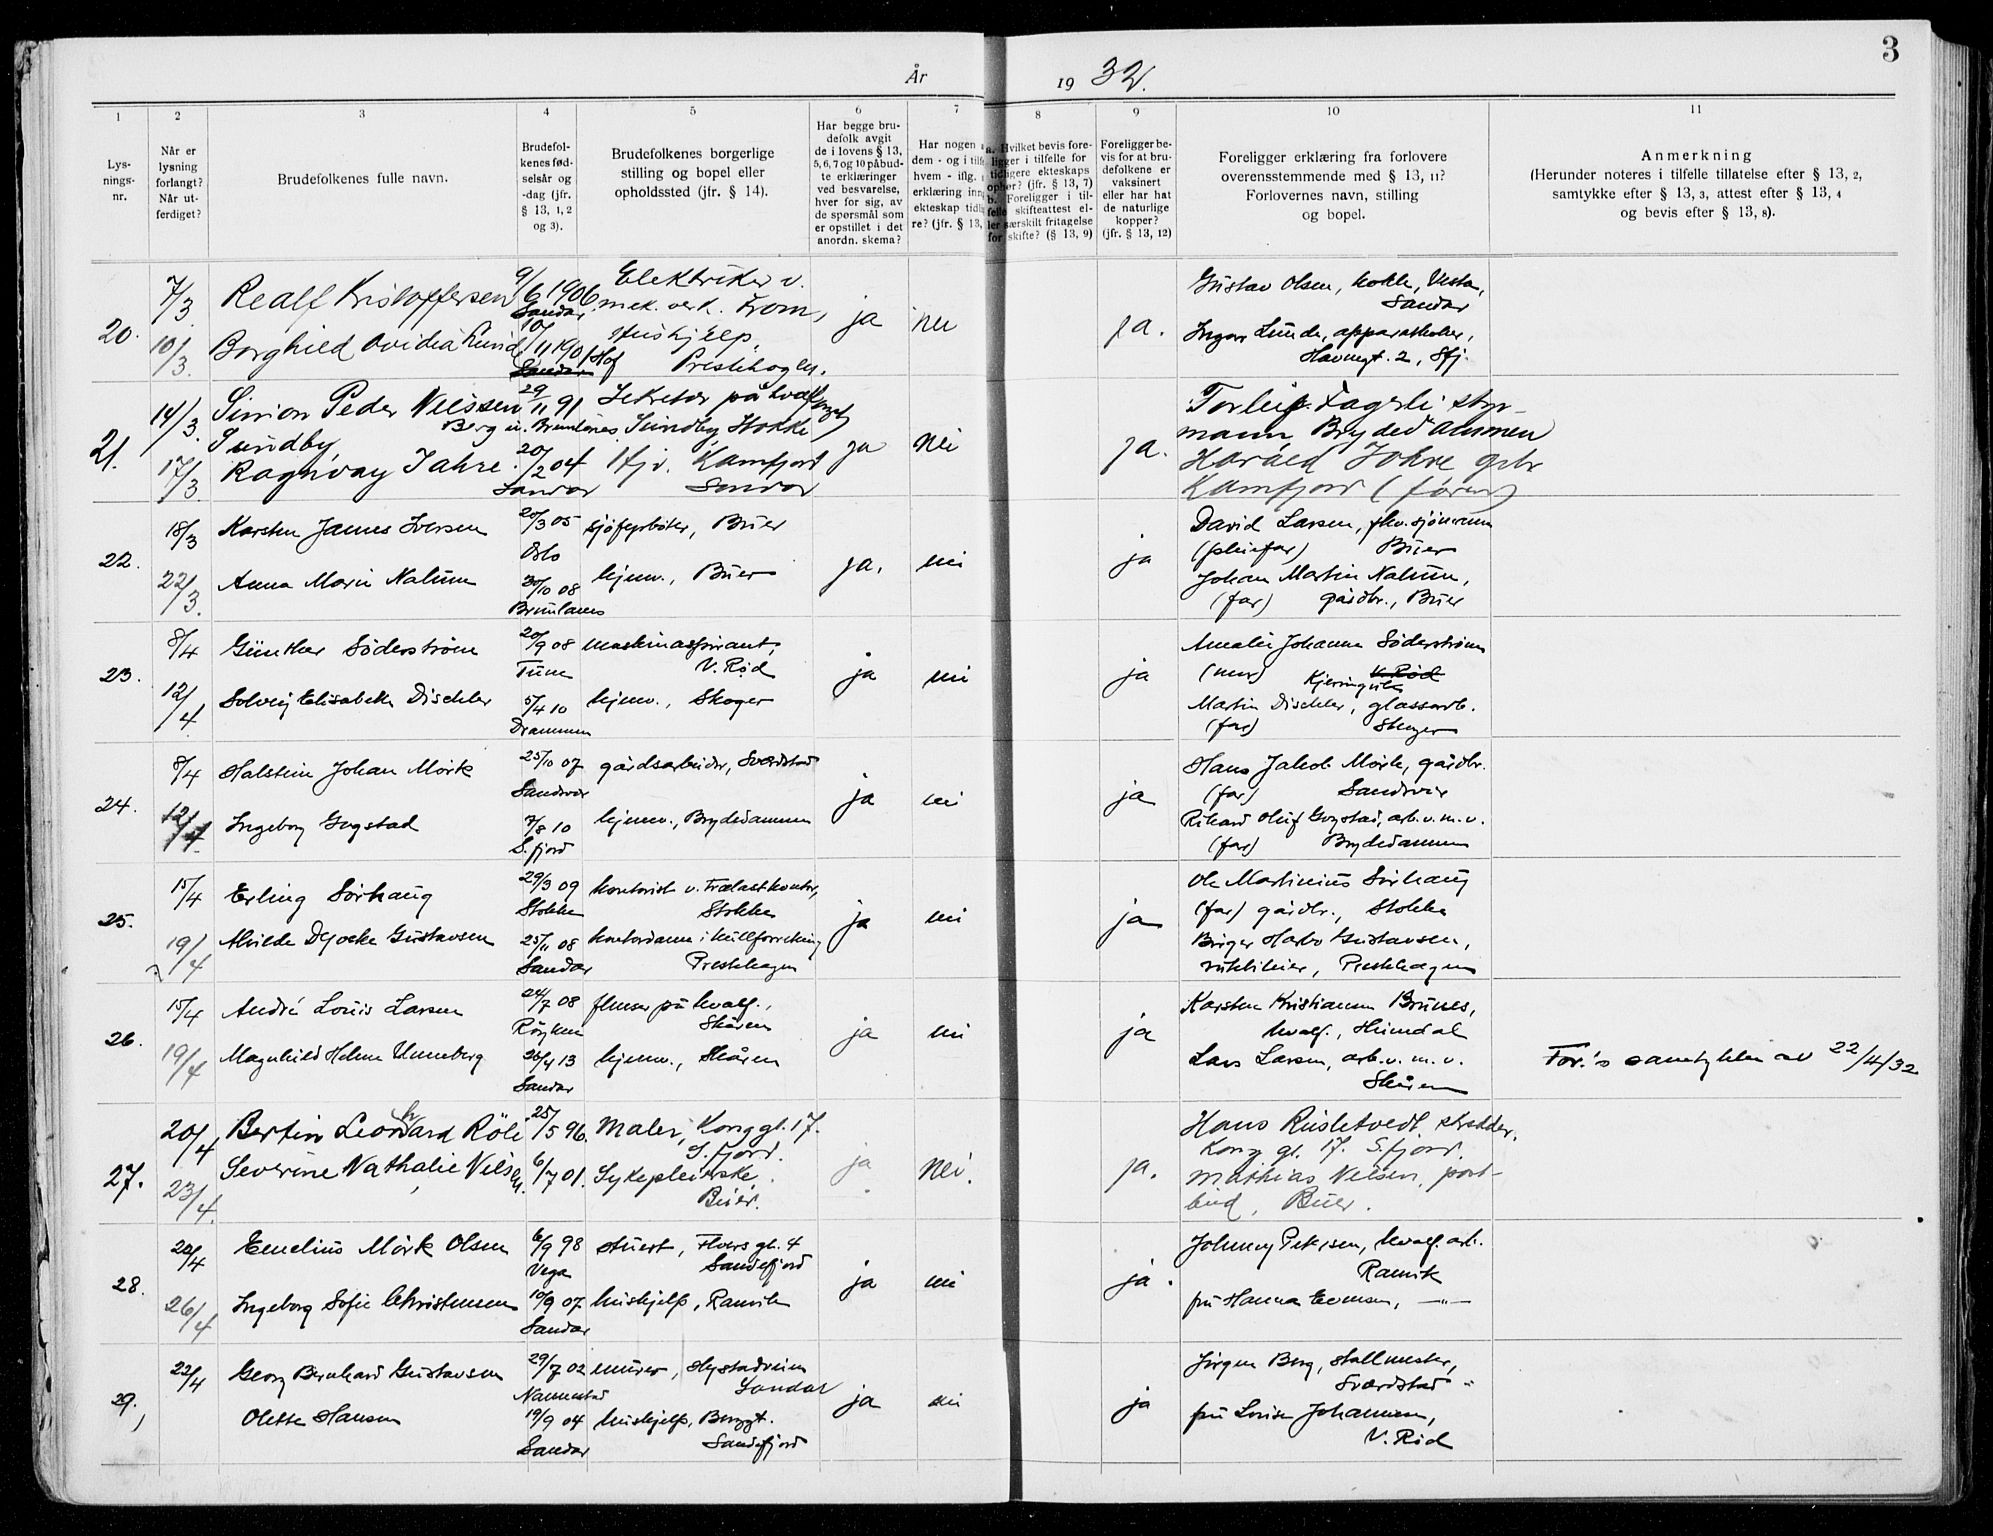 3
År 1932.
1 2 3 4 5 6 7 8 9 10 11
Lys-
nings-
nr.
Når er
lysning
forlangt?
Når ut-
ferdiget?
Brudefolkenes fulle navn.
Brudefol-
kenes fød-
selsår og
-dag (jfr.
§ 13, 1, 2
og 3).
Brudefolkenes borgerlige
stilling og bopel eller
opholdssted (jfr. § 14).
Har begge bru-
defolk avgit
de i lovens § 13,
5, 6, 7 og 10 påbud-
te erklæringer
ved besvarelse,
hver for sig, av
de spørsmål som
er opstillet i det
anordn. skema?
Har nogen
dem - og i tilf.
hvem - iflg.
erklæring inn
ekteskap tidl
re? (jfr. § 13,
a. Hvilket bevis fore-
ligger i tilfelle for
tidligere ekteskaps
ophør? (jfr. § 13, 7)
b. Foreligger i til-
felle skifteattest el-
ler særskilt fritagelse
for skifte? (§ 13, 9)
Foreligger be-
vis for at bru-
defolkene er
vaksinert
eller har hat
de naturlige
kopper?
(jfr. § 13, 12)
Foreligger erklæring fra forlovere
overensstemmende med § 13, 11?
Forlovernes navn, stilling
og bopel.
Anmerkning
(Herunder noteres i tilfelle tillatelse efter § 13, 2,
samtykke efter § 13, 3, attest efter § 13, 4
og bevis efter § 13, 8).
20.
7/3
10/3.
Realf Kristoffersen
9/6 1906
Sandar.
Elektriker v.
mek. verk. Fram,
Borghild Ovidia Lund
10/11 1901 Hof
Sandar
Hushjelp,
Prestehagen.
ja
nei
ja.
Gustav Olsen, kokk, Vesta,
Sandar
Ingar Lunde, apparatkoker,
Havnegt. 2, Sfj.
21.
14/3.
17/3.
Simon Peder Nilssen
Sundby,
29/11 91
Berg i Brunlanes
Sekretær på hvalfanget
Sundby Stokke
Ragnvay Jahre.
20/2 04
Sandar
Hjv. Kamfjord
Sandar
ja
nei
ja.
Torleif Fagerli styr-
mann Brydedammen
Harald Jahre gbr
Kamfjord (føren)
22.
18/3
22/3.
Karsten James Iversen
20/3 05
Oslo
sjøfyrbøter, Buer
Anna Marie Nalum
30/10 08
Brunlanes
hjemv., Buer
ja.
nei
ja
David Larsen, fhv. sjømann
(pleiefar) Buer
Johan Martin Nalum,
(far) gårdbr., Buer
23.
8/4
12/4.
Günther Söderström
20/9 08
Tune
maskinaspirant,
V. Rød
Solveig Elisabeth Dischler
5/4 10
Drammen
hjemv., Skoger
ja
nei
ja
Amalie Johanne Söderström
(mor) V. Rød
Kjerringvik
Martin Dischler, glassarb.
(far) Skoger
24.
8/4
12/4.
Halstein Johan Mörk
25/10 07
Sandsvær
gårdsarbeider, Sværdstad
Ingeborg Gogstad
7/8 10
S.fjord
hjemv., Brydedammen
ja
nei
ja
Hans Jakob Mörk, gårdbr.
(far) Sandsvær
Rikard Oluf Gogstad, arb.v.m.v.
(far) Brydedammen
25.
15/4
19/4
Erling Sörhaug
29/3 09
Stokke
kontorist v. Trælastkontor,
Stokke
Alvilde Dyveke Gustavsen
25/11 08
Sandar
kontordame i kullforretning
Prestehagen
ja
nei
ja
Ole Martinius Sörhaug
(far) gårdbr., Stokke
Birger Harbo Gustavsen,
Prestehagen
26.
15/4
19/4
André Louis Larsen
24/7 08
Röyken
flenser på hvalf.,
Skåren
Magnhild Helene Unneberg
26/4 13
Sandar
hjemv., Skåren
ja
nei
ja
Karsten Kristiansen Brunes,
hvalf., Heimdal
Lars Larsen, arb.v.m.v.
Skåren
For.'s samtykke av 22/4/32
27.
20/4
23/4.
Bertin Leonhard Röli
25/5 96.
Maler, Konggt. 17.
S.fjord.
Severine Nathalie Nilsen.
6/7 01.
Sykepleierske.
Buer.
ja
nei.
ja.
Hans Rusletvedt skredder.
Konggt. 17. S.fjord.
Mathias Nilsen, post-
bud, Buer.
28.
20/4
26/4
Emelius Mörk Olsen
6/9 98
Vega
stuert, Thors gt. 4
Sandefjord
Ingeborg Sofie Christensen
10/9 07
Sandar
hushjelp, Ranvik
ja
nei
ja.
Johnny Petersen, hvalf. arb.
Ranvik
fru Hanna Evensen, —"—
29.
22/4
Georg Bernhard Gustavsen
29/7 02
Nannestad
murer, Hystadveien
Sandar
Olette Hansen
19/9 04
Sandar
hushjelp, Berggt.
Sandefjord
ja
nei
ja
Jörgen Berg, stallmester,
Sværdstad
fru Louise Johannesen,
V. Rød